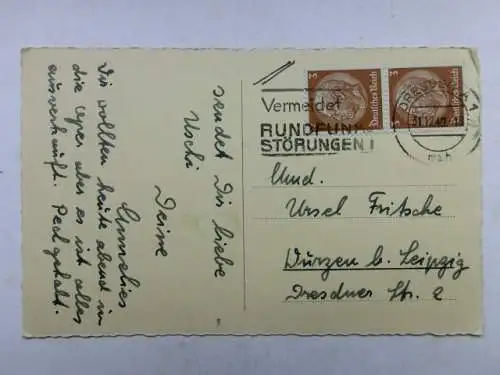 sendet Dir liebe
Uschi
Deine
Annelies
Wir wollten heute abend in
die Oper aber es ist alles
ausverkauft. Pech gehabt.
3 Deutsches Reich
3 Deutsches Reich
Vermeidet
RUNDFUNK
STÖRUNGEN!
DRESDEN A 1
31.12.40
Ursel Fritsche
Wurzen b. Leipzig
Dresdner Str. 2